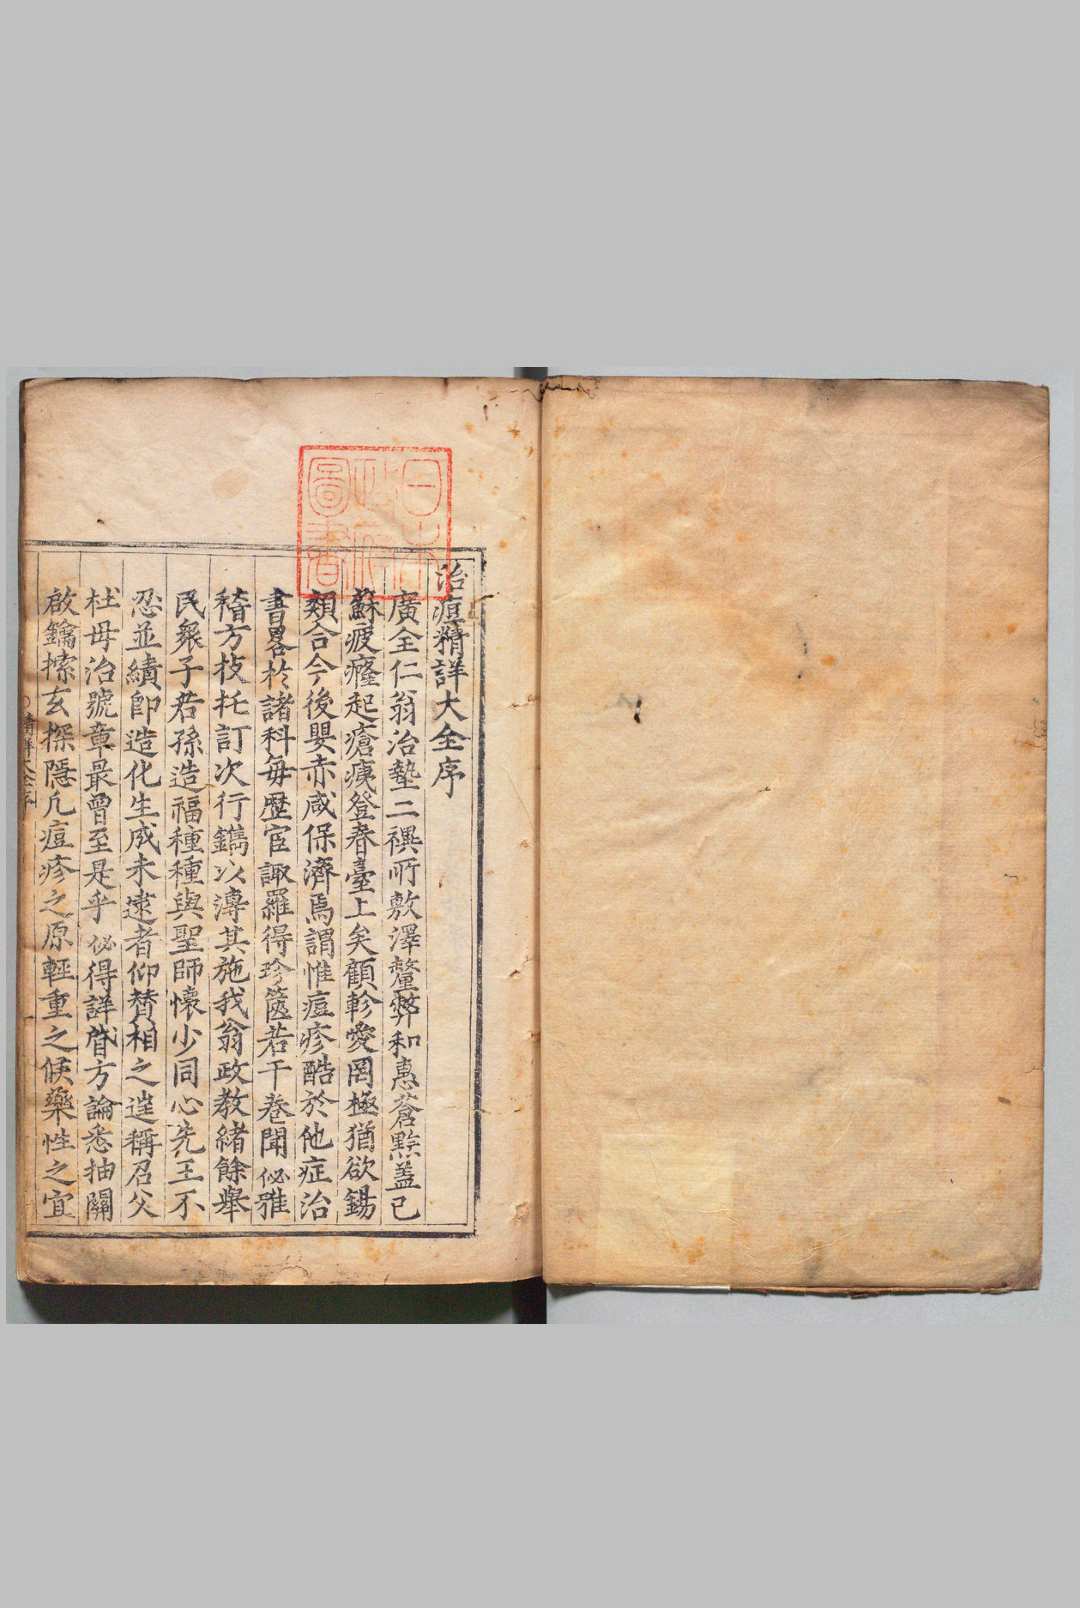 日本
政府
圖書
治痘精詳大全序
廣全仁翁治墊二禩所敷澤釐弊和惠蒼黔蓋已
蘇疲癃起瘡痍登春臺上矣顧軫愛罔極猶欲錫
類合今後嬰赤咸保濟焉謂惟痘疹酷於他症治
書畧於諸科每歷宦諏羅得珍篋若干卷聞佖雅
稽方技托訂次行鐫以溥其施我翁政教緒餘舉
民衆子若孫造福種種與聖師懷少同心先王不
忍並績卽造化生成未逮者仰賛相之遑稱召父
杜母治號章最曾至是乎佖得詳閱方論悉抽關
啟鑰探玄探隱凡痘疹之原輕重之候藥性之宜
精詳大全序